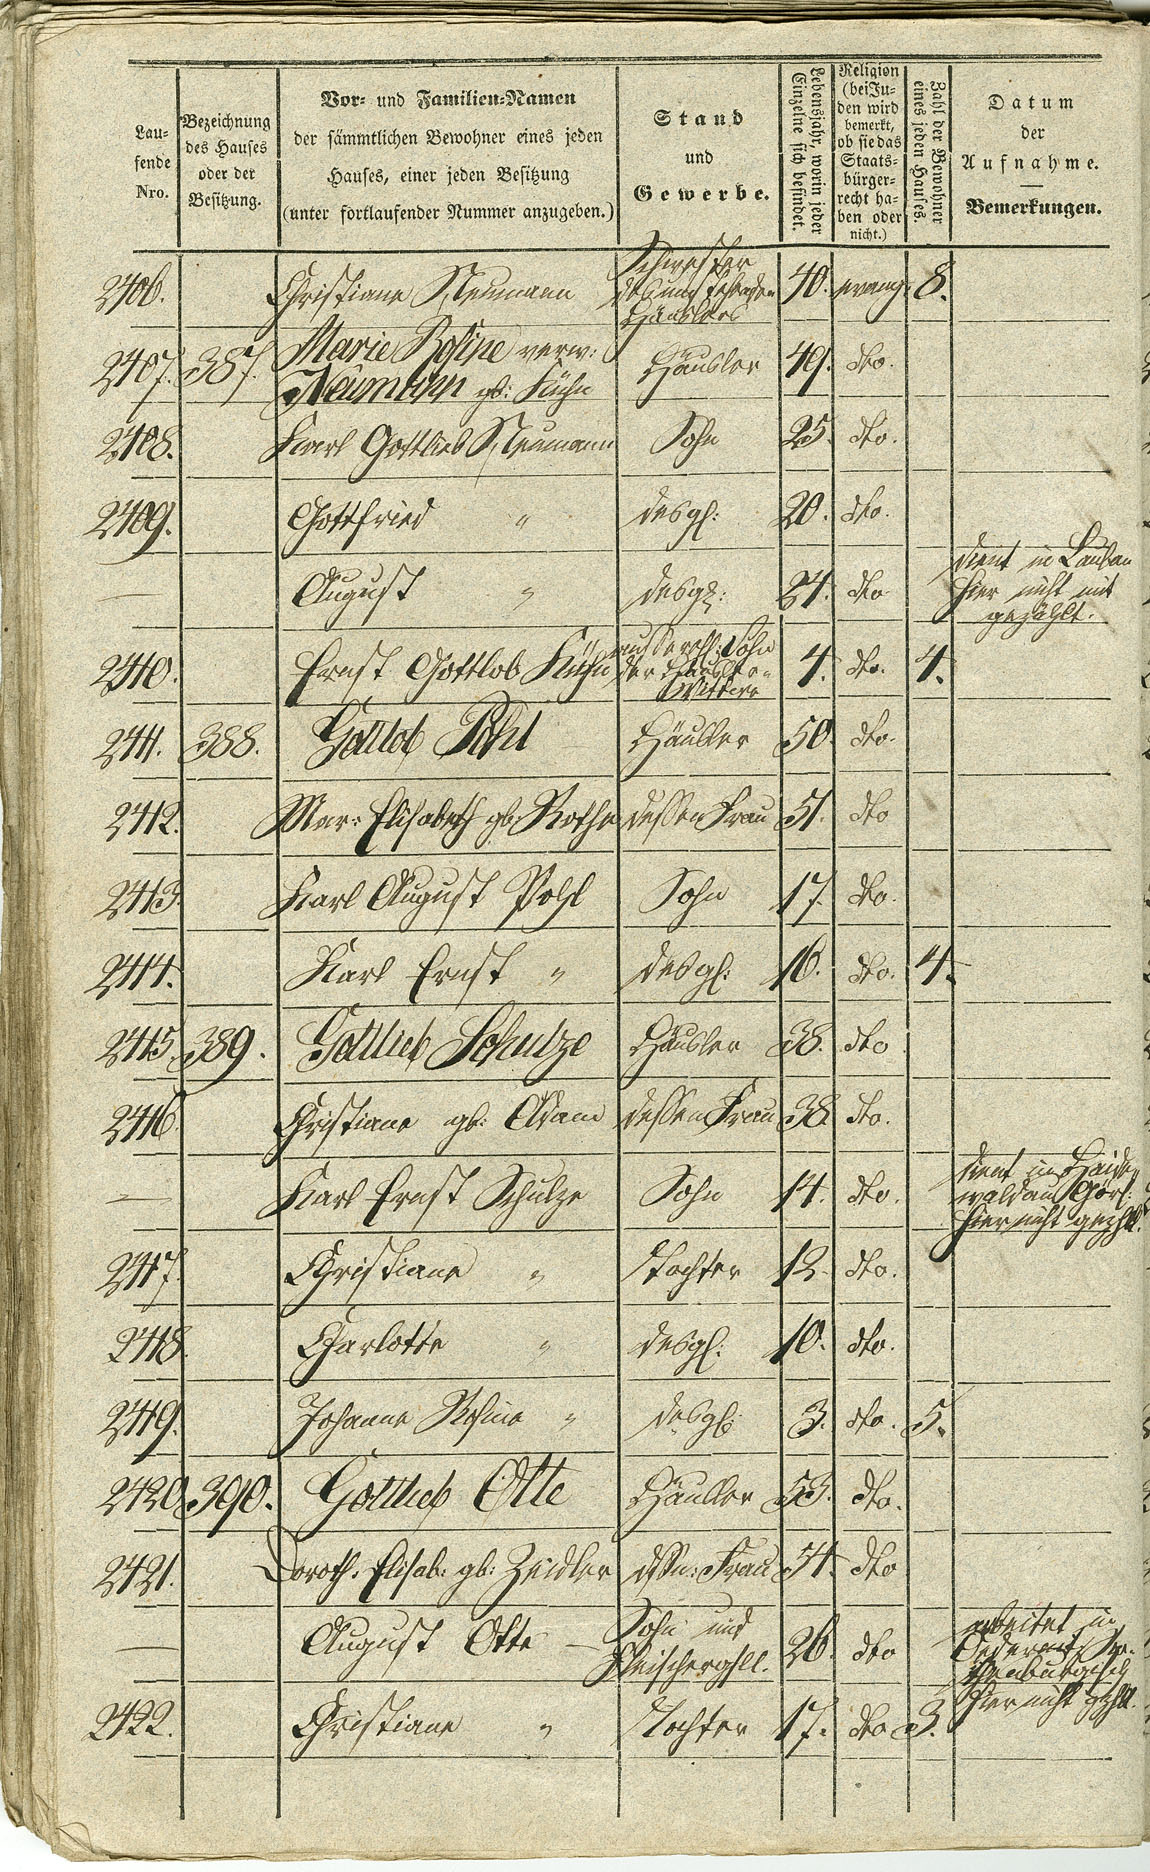 Lau-
fende
Nro.
Bezeichnung
des Hauses
oder der
Besitzung.
Vor- und Familien-Namen
der sämmtlichen Bewohner eines jeden
Hauses, einer jeden Besitzung
(unter fortlaufender Nummer anzugeben.)
Stand
und
Gewerbe.
Lebensjahr, worin jeder
Einzelne sich befindet.
Religion
(bei Ju-
den wird
bemerkt,
ob sie das
Staats-
bürger-
recht ha-
ben oder
nicht.)
Zahl der Bewohner
eines jeden Hauses.
Datum
der
Aufnahme.
Bemerkungen.
2406. Christiane Neumann Schwester des Häuslers 40. evang. 8.
2407. 387. Marie Rosine verw: Häusler 49. dto.
Neumann gb: Kühn
2408. Karl Gottlieb Neumann Sohn 25. dto.
2409. Gottfried " desgl: 20. dto.
— August " desgl: 24. dto dient in Lauban
hier nicht mit
gezählt.
2410. Ernst Gottlob Kühn Sohn der Häusler- 4. dto. 4.
2411. 388. Gottlob Pohl Häusler 50. dto.
2412. Mar: Elisabeth gb: Rothe dessen Frau 51. dto
2413. Karl August Pohl Sohn 17. dto.
2414. Karl Ernst " desgl: 16. dto. 4.
2415. 389. Gottlieb Schulze Häusler 38. dto
2416. Christiane gb: Adam dessen Frau 38. dto.
— Karl Ernst Schulze Sohn 14. dto. dient in Haide-
waldau Görl:
hier nicht gezählt.
2417. Christiane " Tochter 12. dto.
2418. Charlotte " desgl: 10. dto.
2419. Johanne Rosine " desgl: 3. dto. 5.
2420. 390. Gottlieb Otte Häusler 53. dto.
2421. Doroth. Elisab: gb: Zeidler dssn: Frau 54. dto
— August Otte — Sohn und 26. dto arbeitet in
Fleischergsell.
hier nicht gzhlt.
2422. Christiane " Tochter 17. dto 3.